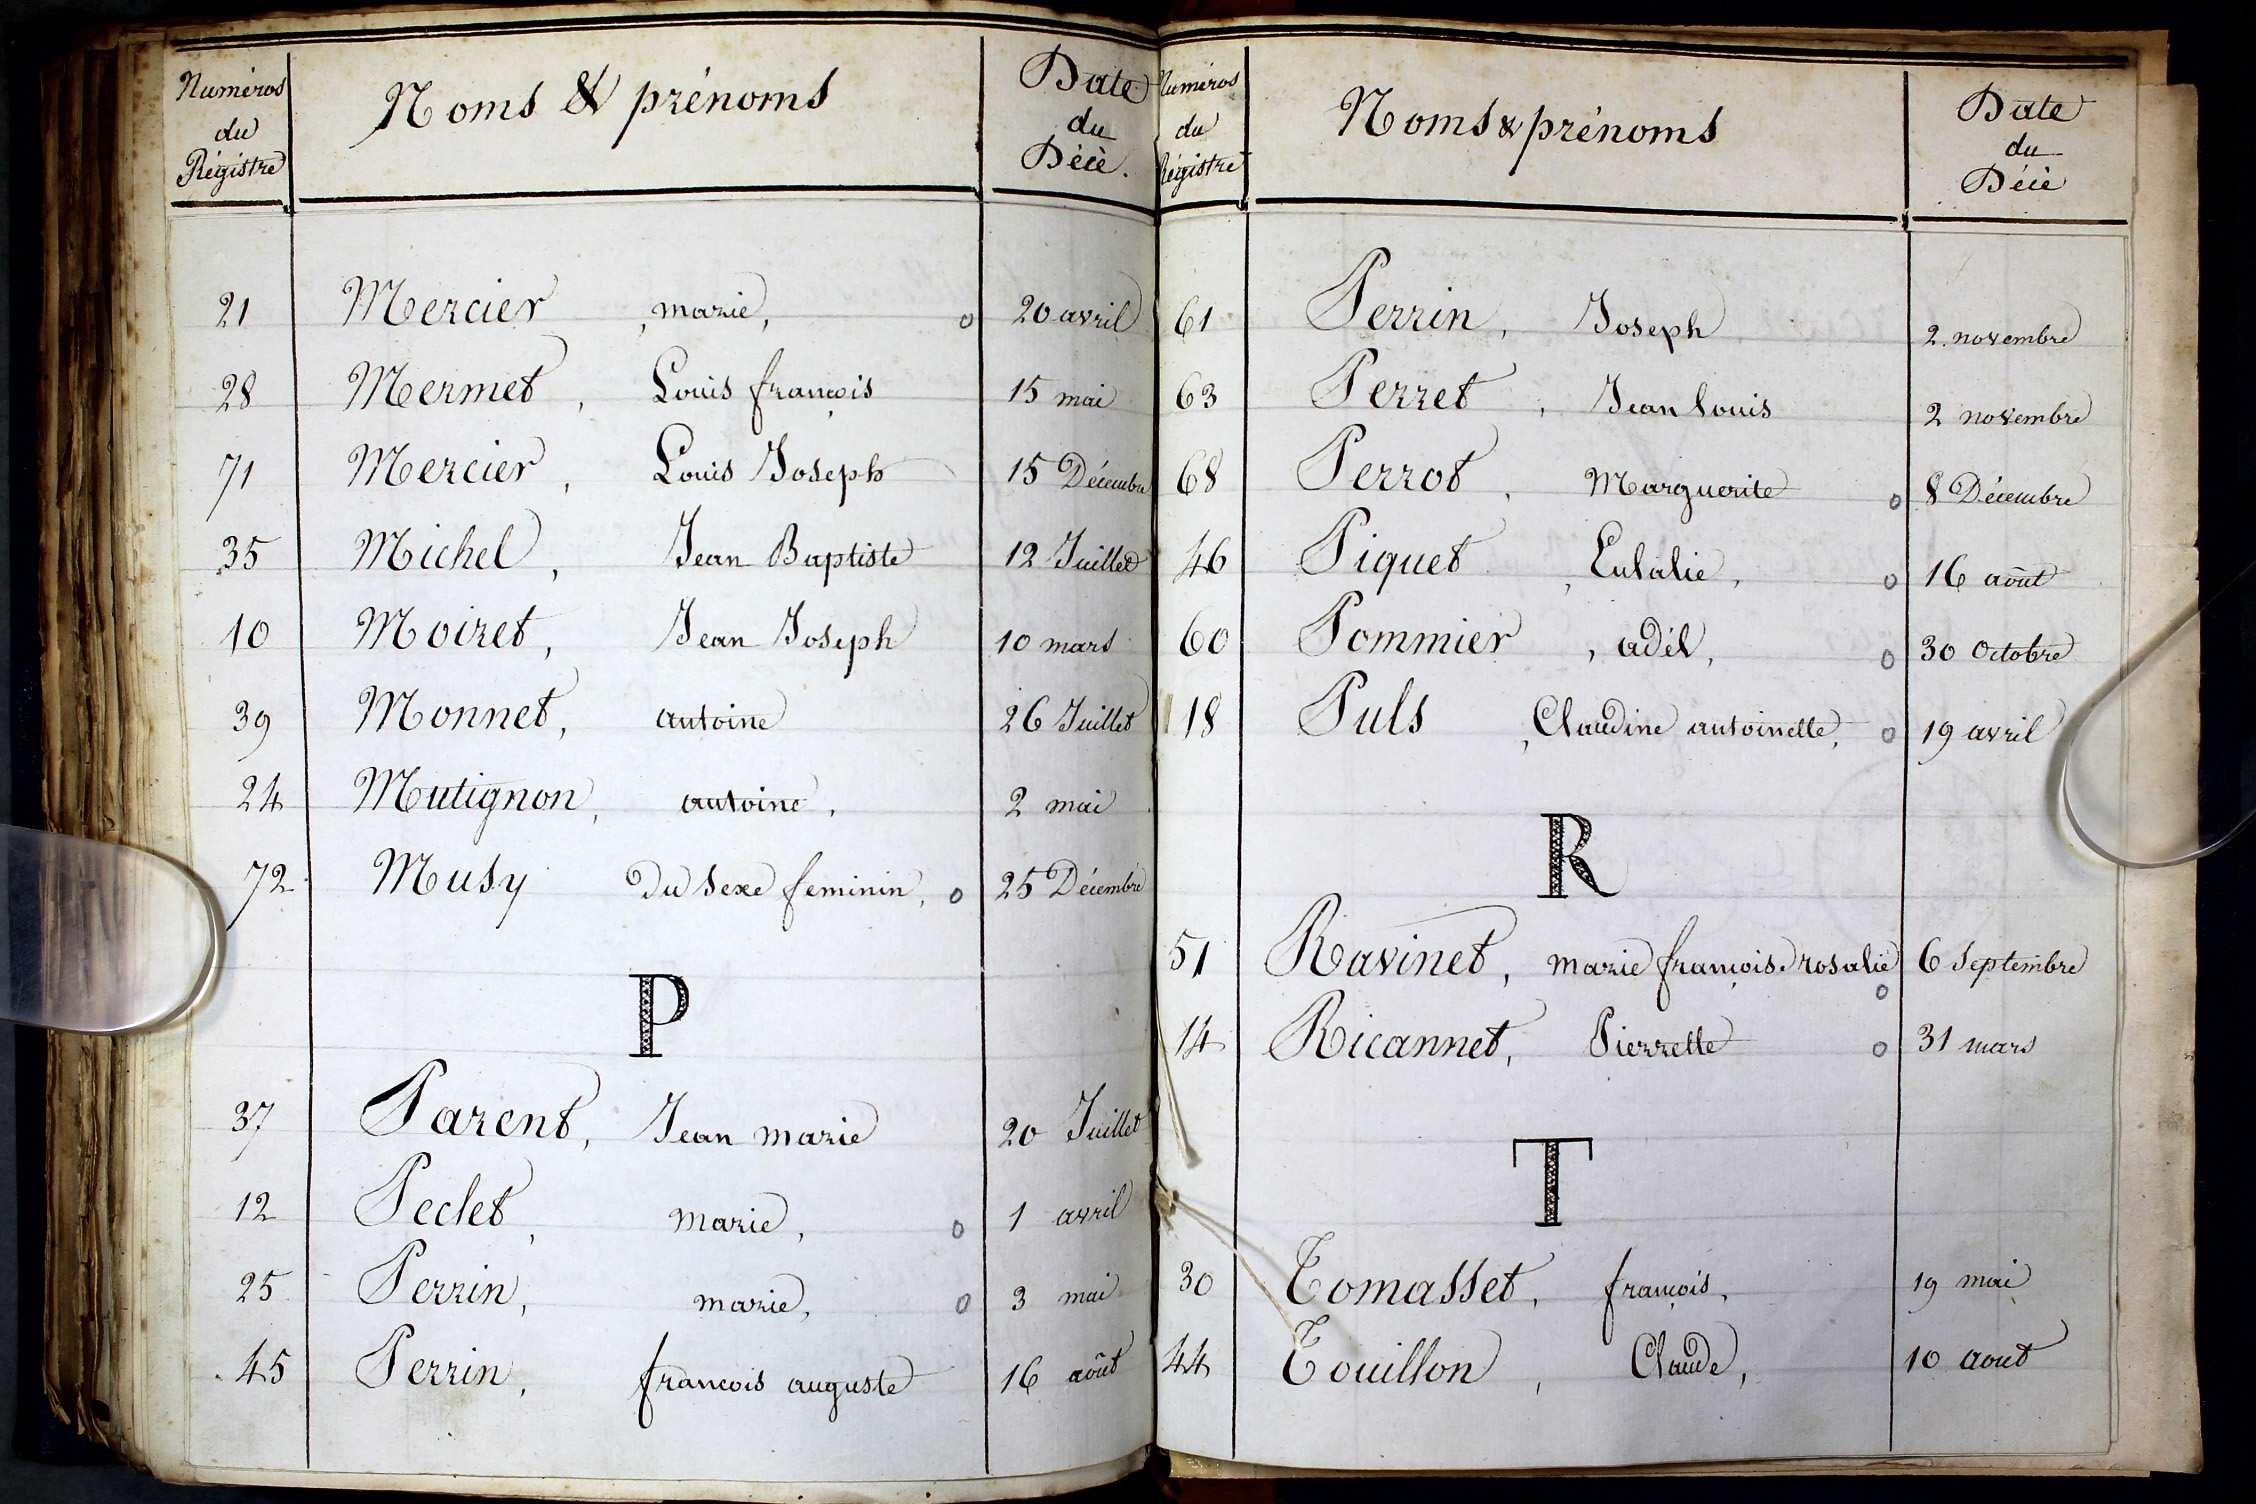 Numéros du Régistre Noms & prénoms Date du Décè.
21 Mercier, marie, o 20 avril
28 Mermet, Louis françois 15 mai
71 Mercier, Louis Joseph 15 Décembre
35 Michel, Jean Baptiste 12 Juillet
10 Moiret, Jean Joseph 10 mars
39 Monnet, antoine 26 Juillet
24 Mutignon, antoine, 2 mai
72 Musy du sexe feminin, o 25 Décembre
P
37 Parent, Jean marie 20 Juillet
12 Peclet, marie, o 1 avril
25 Perrin, marie, o 3 mai
45 Perrin, françois auguste 16 août
Numéros du Régistre Noms & prénoms Date du Décè
61 Perrin, Joseph 2 novembre
63 Perret, Jean Louis 2 novembre
68 Perrot, Marguerite o 8 Décembre
46 Piquet, Eulalie, o 16 août
60 Pommier, adél, o 30 Octobre
18 Puls, Claudine antoinette, o 19 avril
R
51 Ravinet, marie françois. rosalie o 6 Septembre
14 Ricannet, Pierrette o 31 mars
T
30 Tomasset, françois, 19 mai
44 Touillon, Claude, 10 aout